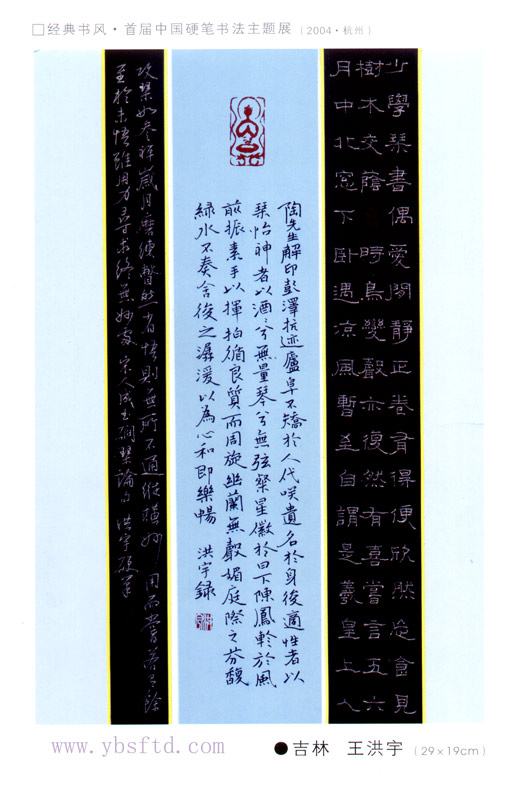 □经典书风·首届中国硬笔书法主题展（2004·杭州）
少學琴書偶愛閑靜正卷有得便欣然忘食見
樹木交蔭時鳥變聲亦復然有喜嘗言五六
月中北窓下卧遇涼風暫至自謂是羲皇上人
陶先生解印彭澤抗迹廬阜不矯於人代咲遺名於身後適性者以
琴怡神者以酒々兮無量琴兮無弦粲星徽於日下陳鳳軫於風
前振素手以揮拍循良質而周旋幽蘭無聲媚庭際之芬馥
綠水不奏含後之潺湲以為心和即樂暢 洪宇錄
攻琴如參禪歲月磨練瞥然省悟則無所不通縱橫妙用而嘗若有餘
至於未悟雖用力尋求終無妙處 宋人成玉磵琴論句 洪宇硬筆
www.ybsftd.com
●吉林 王洪宇（29×19cm）